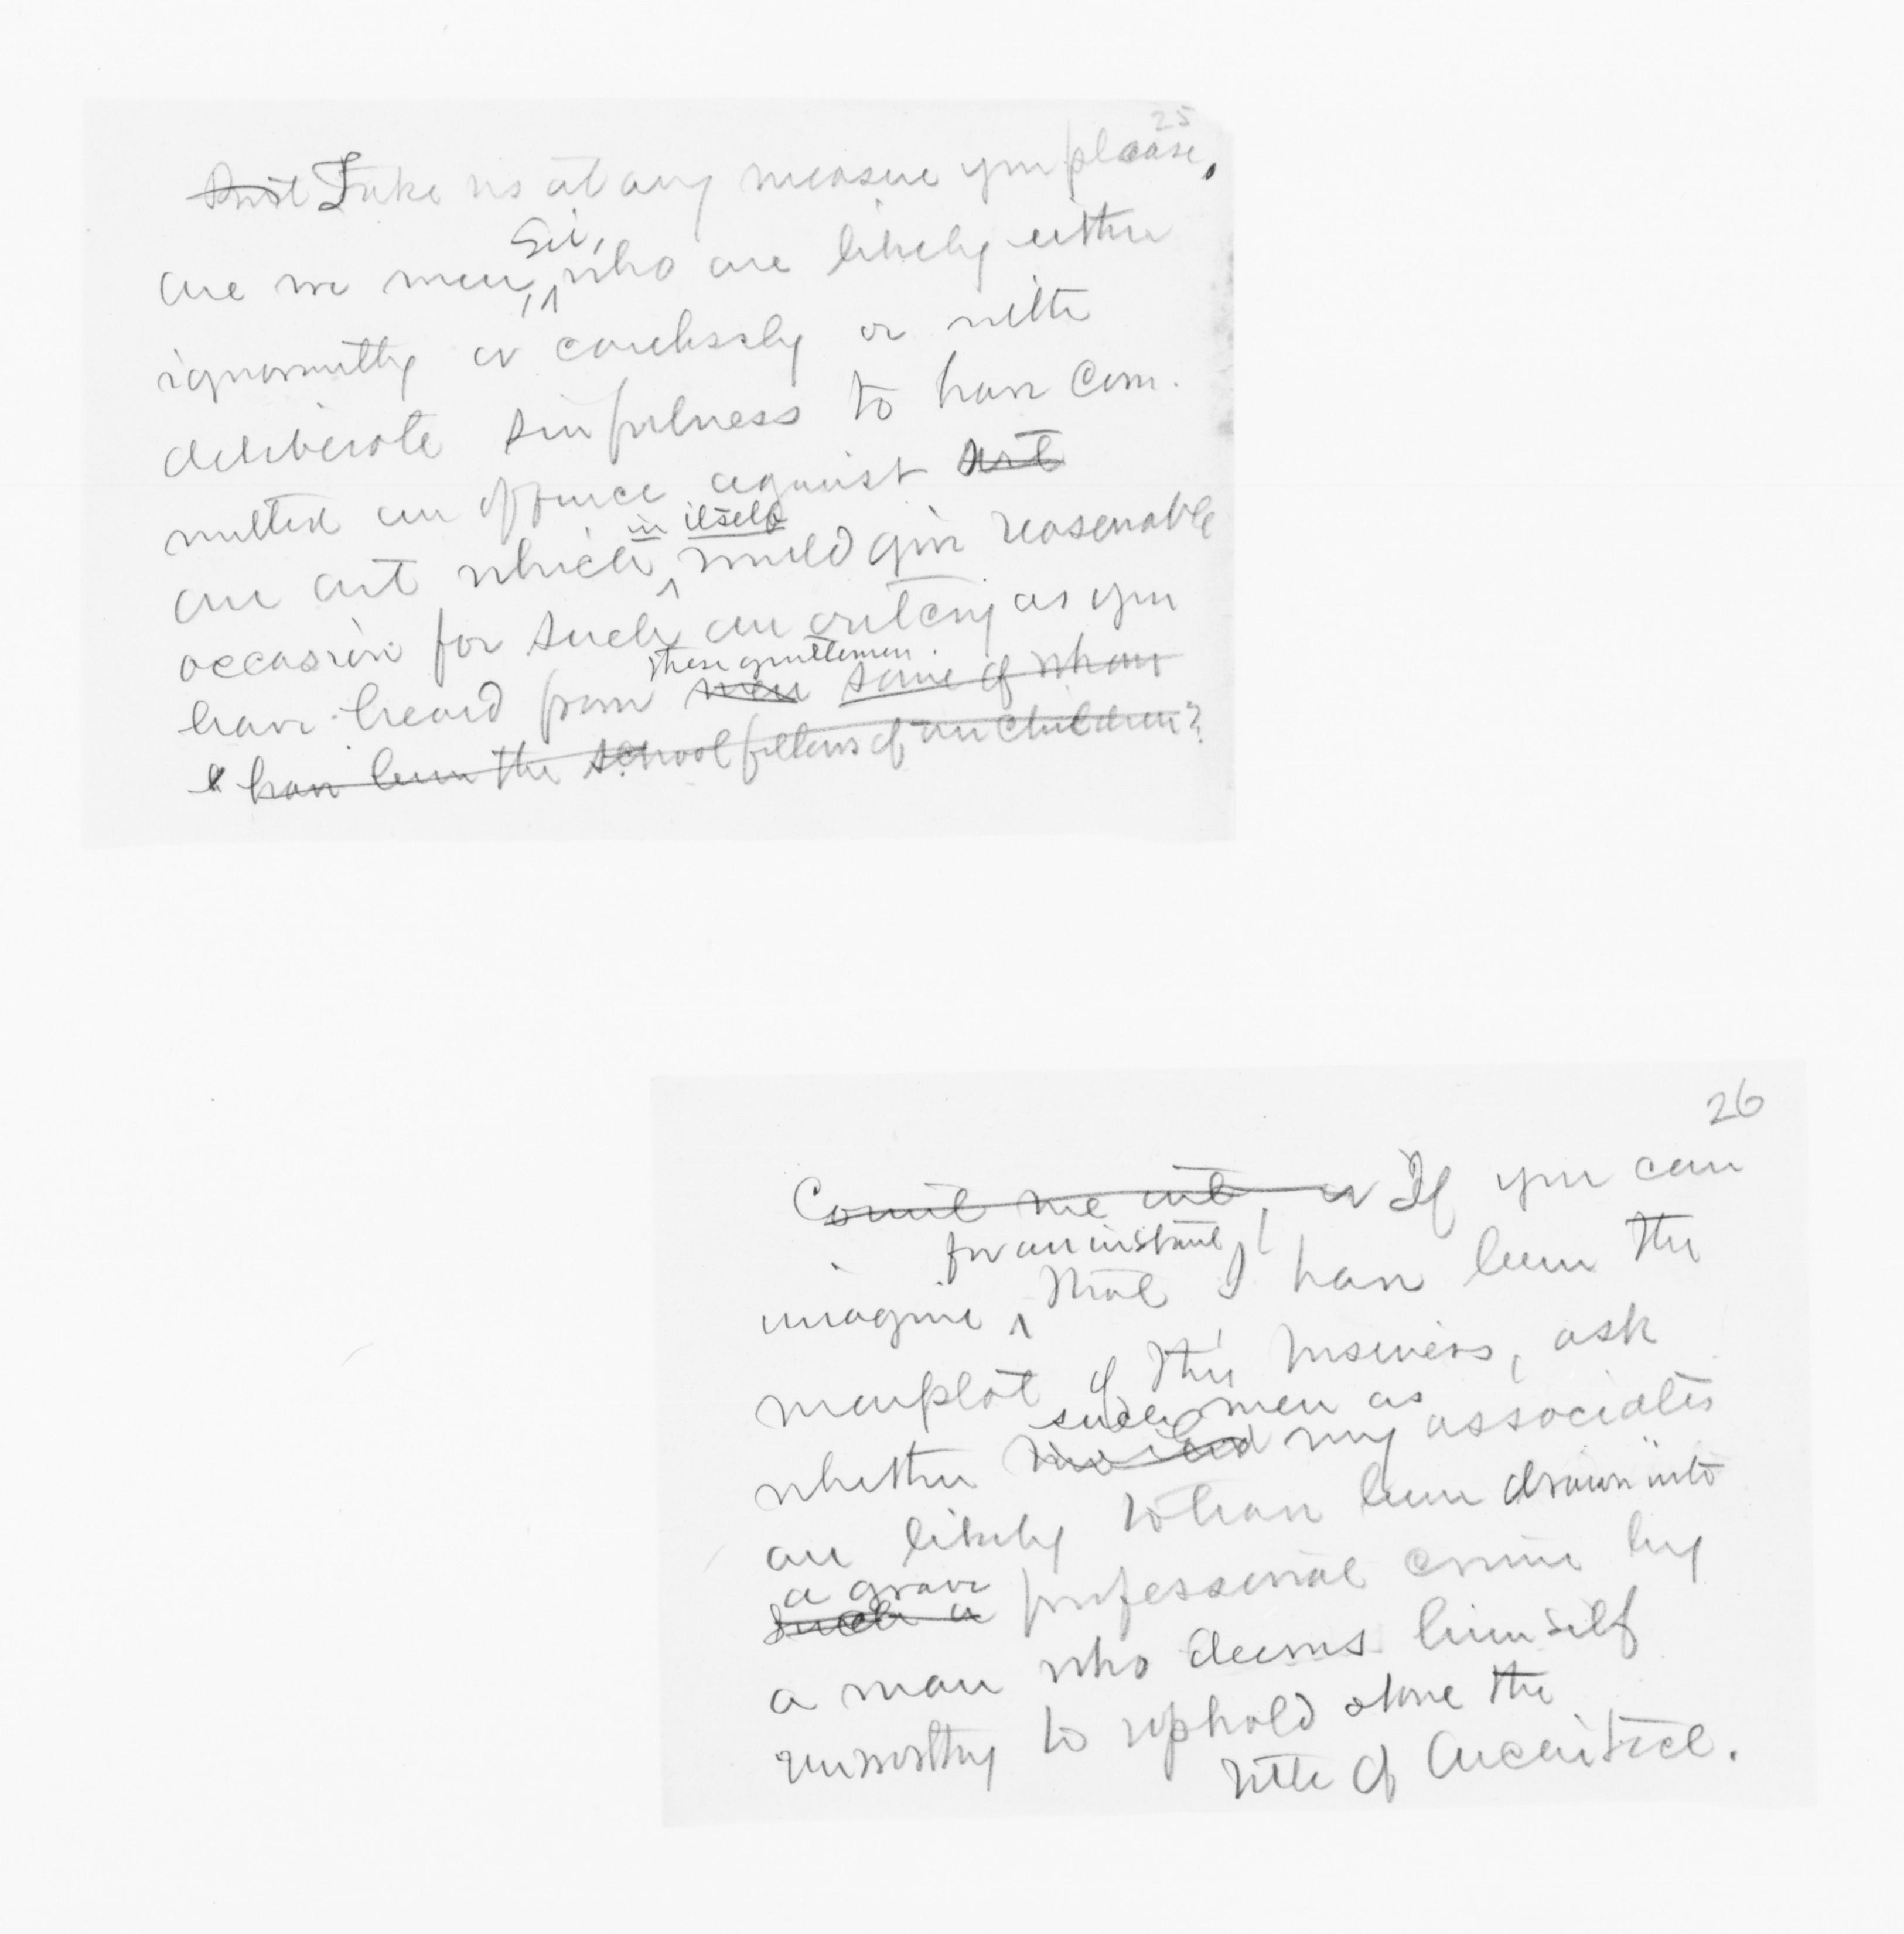 25
Take us at any measure you please,
are we men, Sir, who are likely either
ignorantly or carelessly or with
deliberate sinfulness to have com-
mitted an offence against art
an art which in itself would give reasonable
occasion for such an outcry as you
have heard from these gentlemen. men some of whom
have been the school fellows of our children?
26
Count me out, or If you can
imagine for an instant that I have been the
marplot of this business, ask
whether such men as my associates
are likely to have been drawn into
a grave such a professional crime by
a man who deems himself
unworthy to uphold alone the
title of Architect.